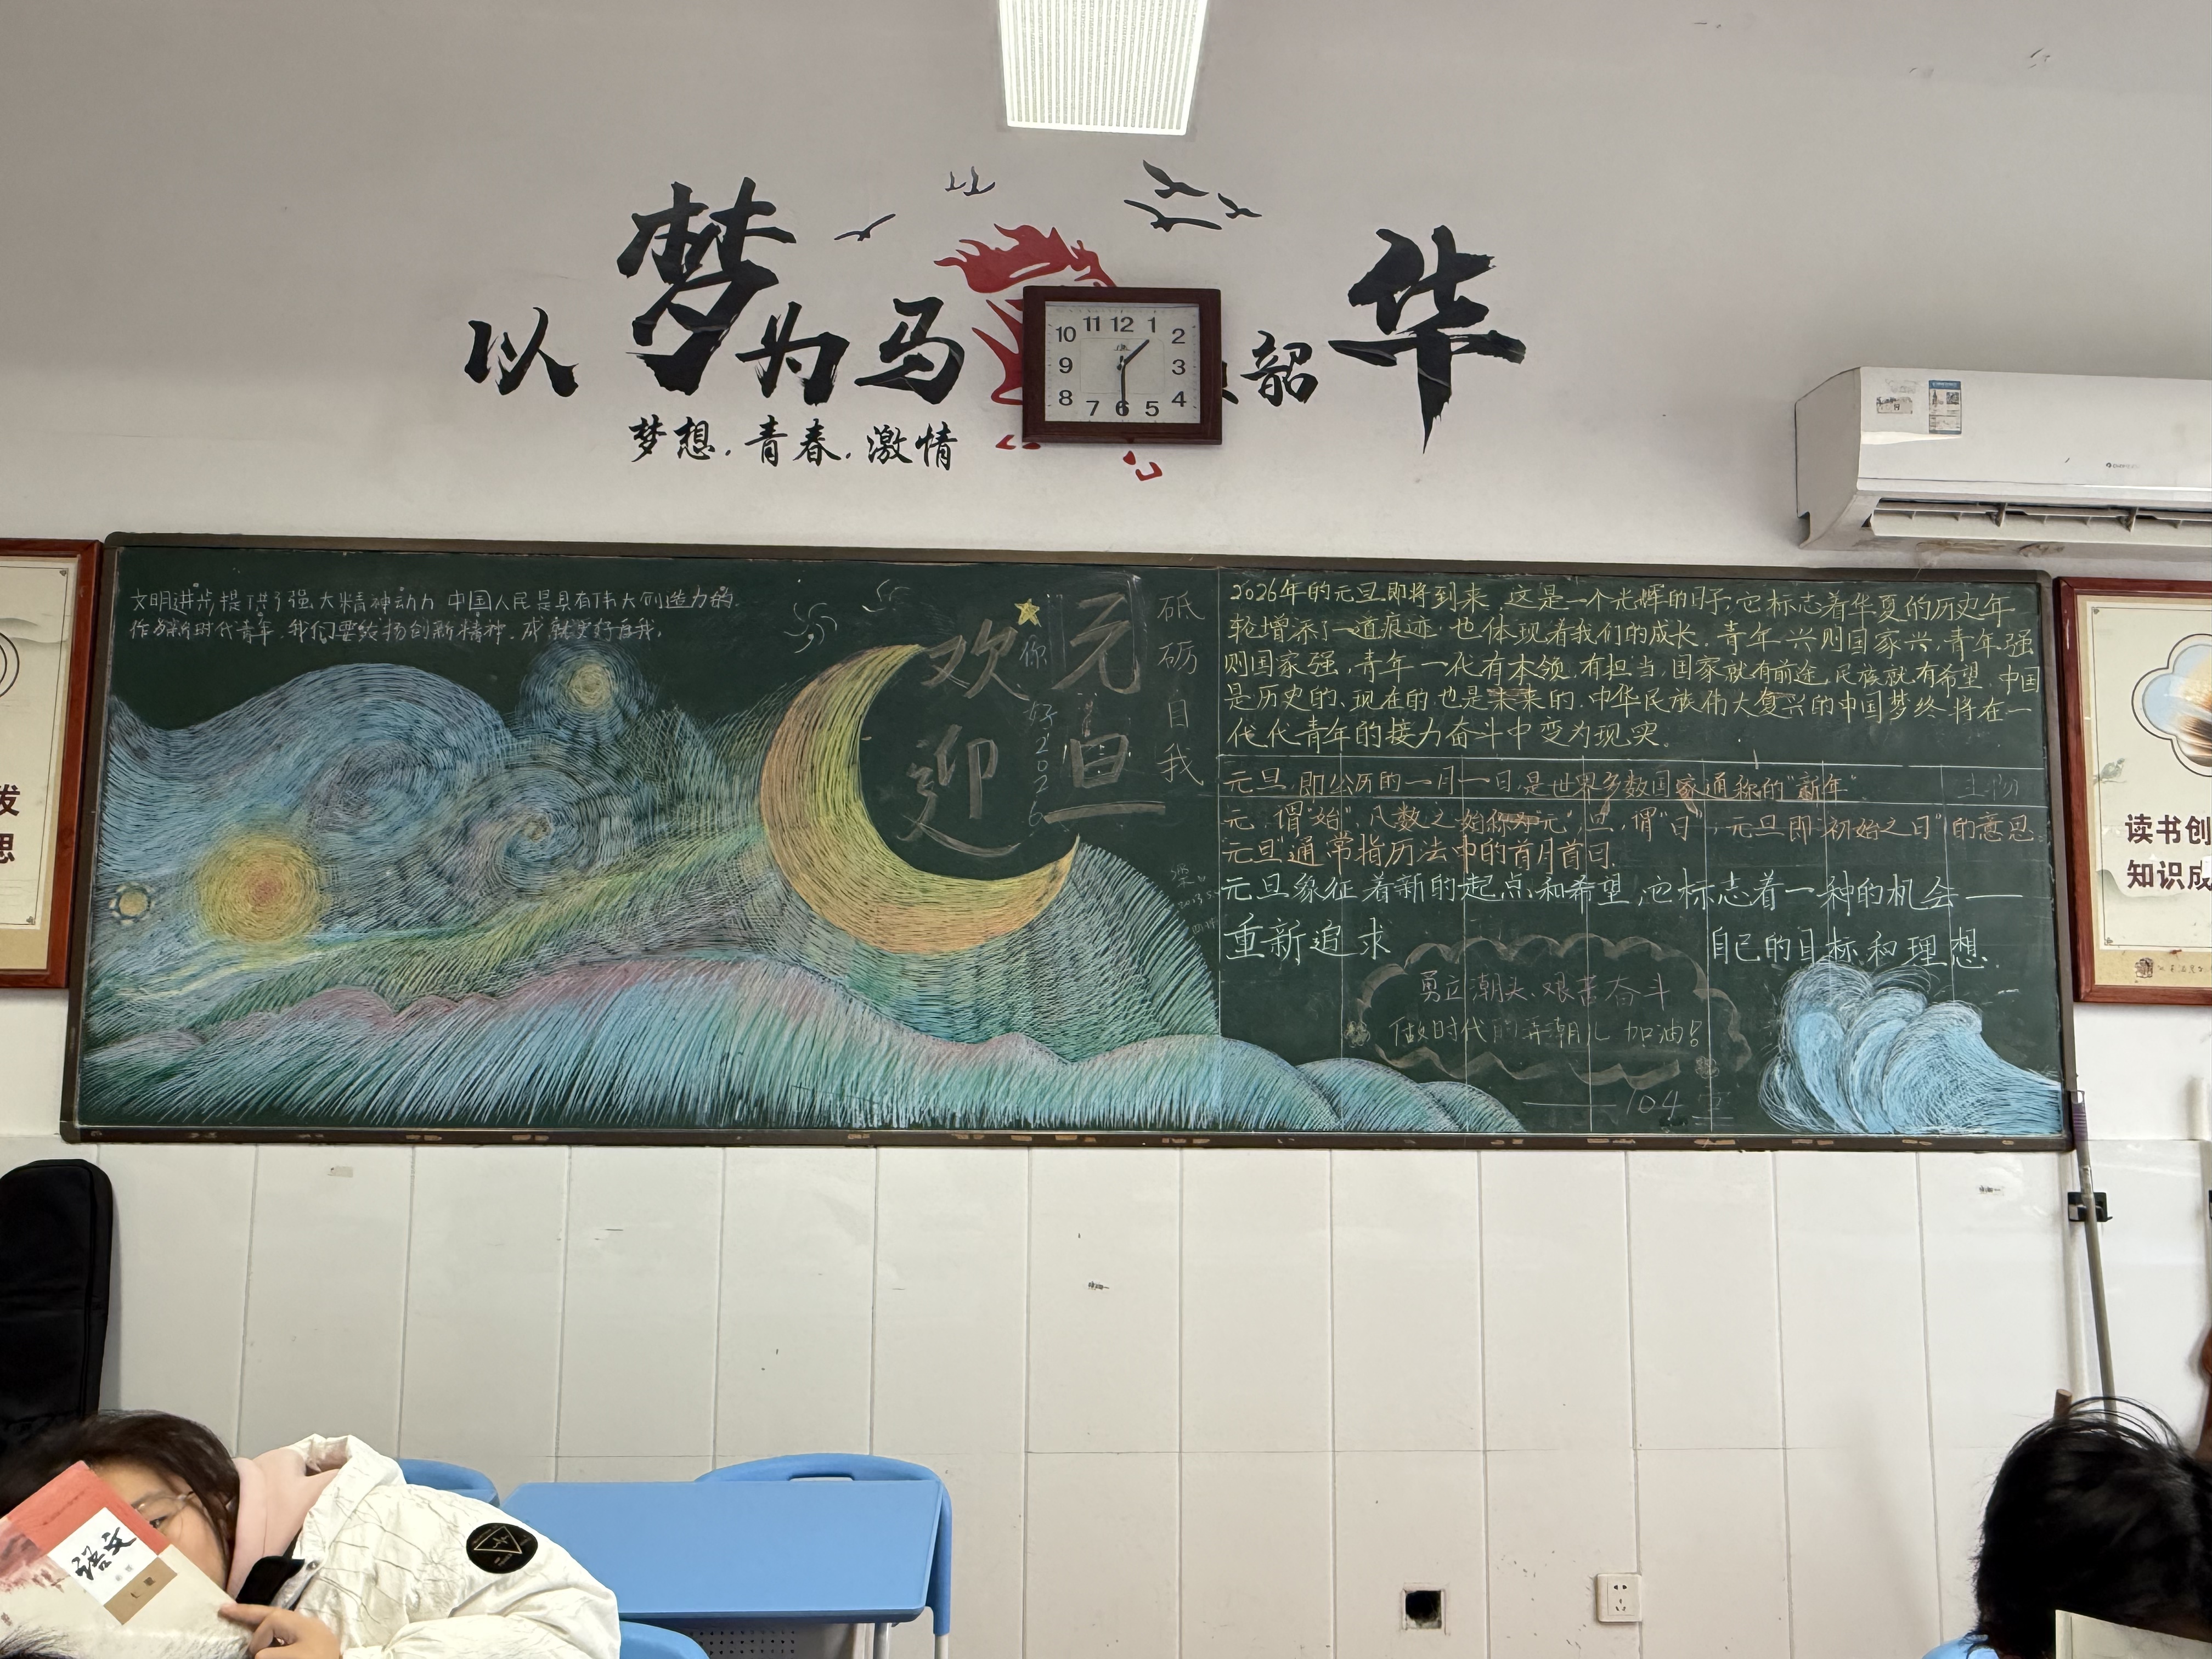 以梦为马
韶华
梦想.青春.激情
11 12 1
10 2
9 3
8 4
7 6 5
文明进步提供了强大精神动力,中国人民是具有伟大创造力的.
作为新时代青年,我们要发扬创新精神,成就更好自我,
欢迎
你好2026
元旦
砥砺自我
2026年的元旦即将到来,这是一个光辉的日子,它标志着华夏的历史年
轮增添了一道痕迹,也体现着我们的成长,青年兴则国家兴,青年强
则国家强,青年一代有本领,有担当,国家就有前途,民族就有希望,中国
是历史的、现在的也是未来的.中华民族伟大复兴的中国梦终将在一
代代青年的接力奋斗中变为现实。
元旦,即公历的一月一日,是世界多数国家通称的"新年".
生物
元,谓"始",凡数之始称为"元",旦,谓"日",元旦即"初始之日"的意思.
"元旦"通常指历法中的首月首日.
元旦象征着新的起点和希望,它标志着一种的机会——
重新追求 自己的目标和理想.
勇立潮头、艰苦奋斗
做时代的弄潮儿 加油!
——104宣
发
思
读书创
知识成
语文